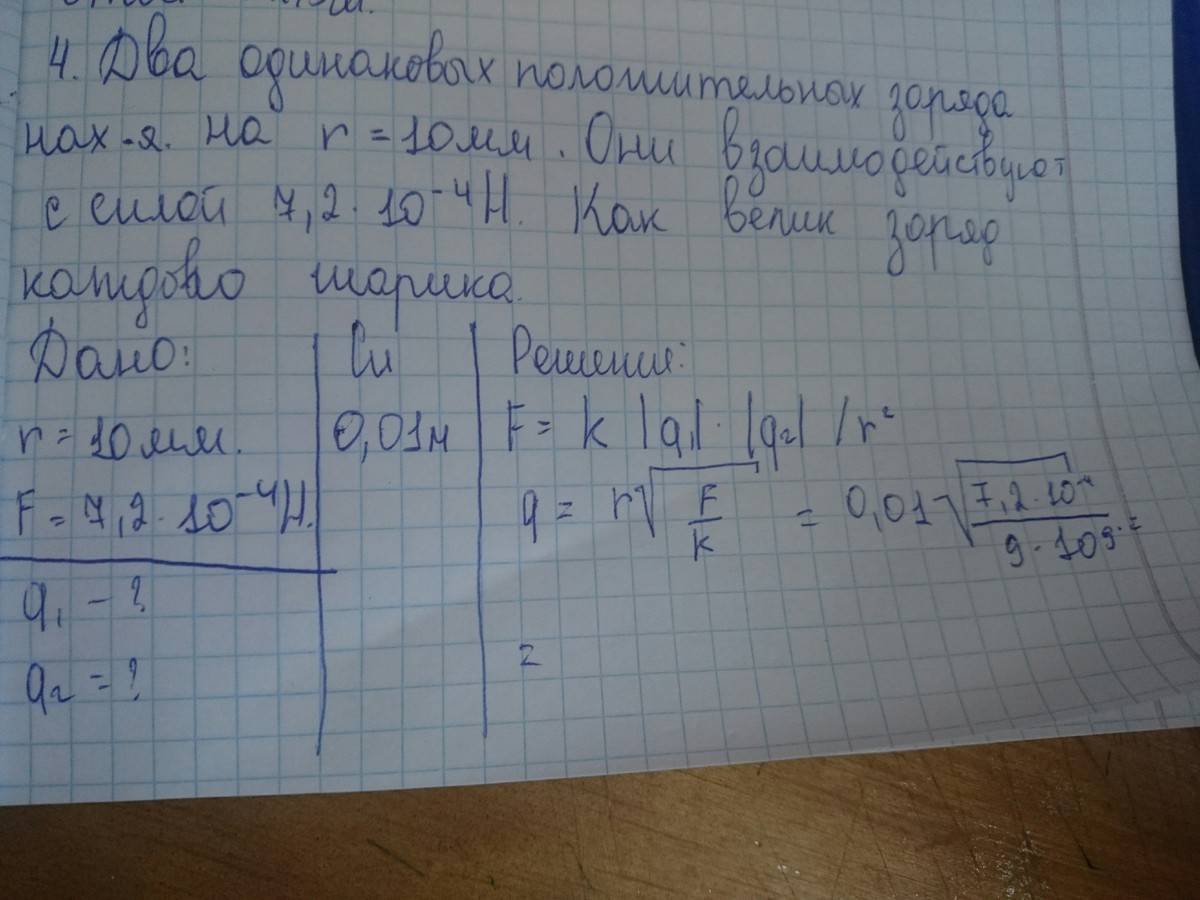 4. Два одинаковых положительных заряда
нах-я. на r = 10мм. Они взаимодействуют
с силой 7,2 · 10⁻⁴ Н. Как велик заряд
каждово шарика.
Дано: Си Решение:
r = 10мм. 0,01м F = k |q₁| · |q₂| / r²
F = 7,2 · 10⁻⁴ Н. q = r√F/k = 0,01 √7,2 · 10⁻⁴/9 · 10⁹ =
q₁ - ?
=
q₂ = ?